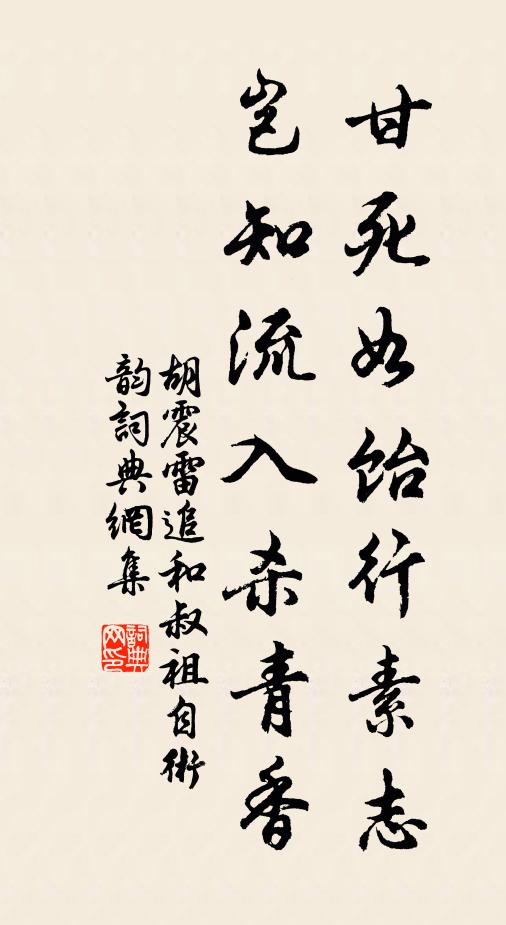 甘死如饴行素志
岂知流入杀青香
胡震雷追和叔祖自衒
韵詞典網集
詞典网印